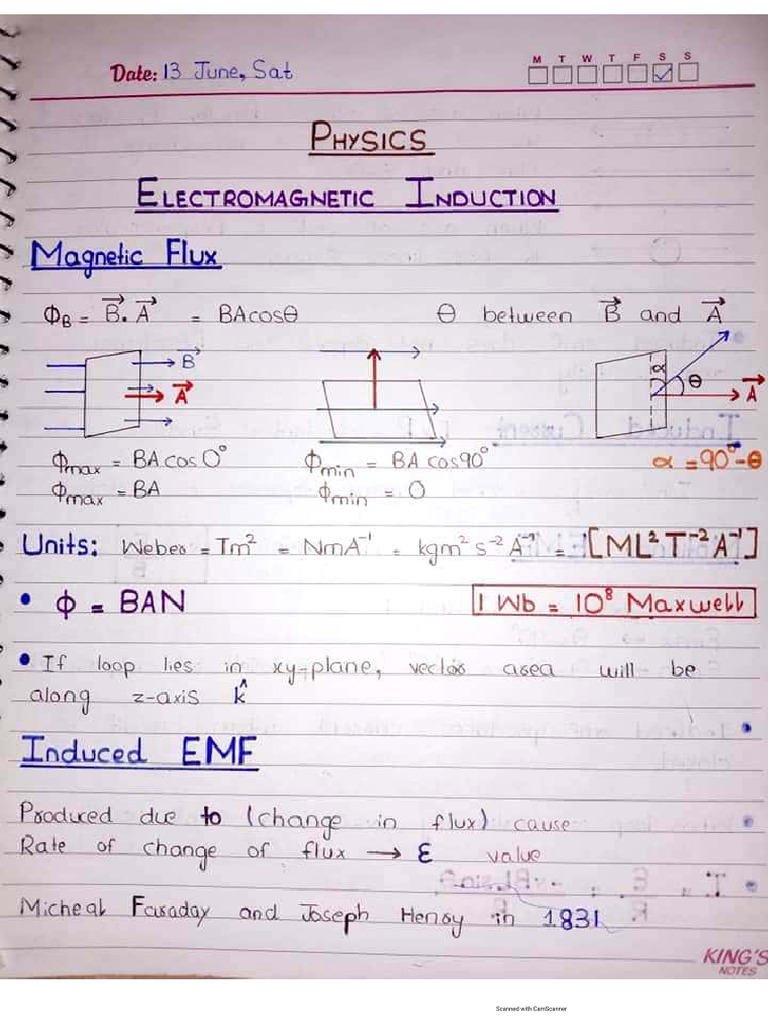 Date: 13 June, Sat
M T W T F S S
PHYSICS
ELECTROMAGNETIC INDUCTION
Magnetic Flux
ΦB = B⃗. A⃗ = BAcosθ θ between B⃗ and A⃗
B⃗
A⃗
α
θ
A⃗
Φmax = BA cos 0° Φmin = BA cos90° α = 90°-θ
Φmax = BA Φmin = 0
Units: Weber = Tm² = NmA⁻¹ = kgm² s⁻² A⁻¹ = [ML² T⁻² A⁻¹]
• Φ = BAN 1 Wb = 10⁸ Maxwell
• If loop lies in xy-plane, vector area will be
along z-axis k̂
Induced EMF
Produced due to (change in flux) cause
Rate of change of flux → ε value
Micheal Faraday and Joseph Henry in 1831
KING'S
NOTES
Scanned with CamScanner